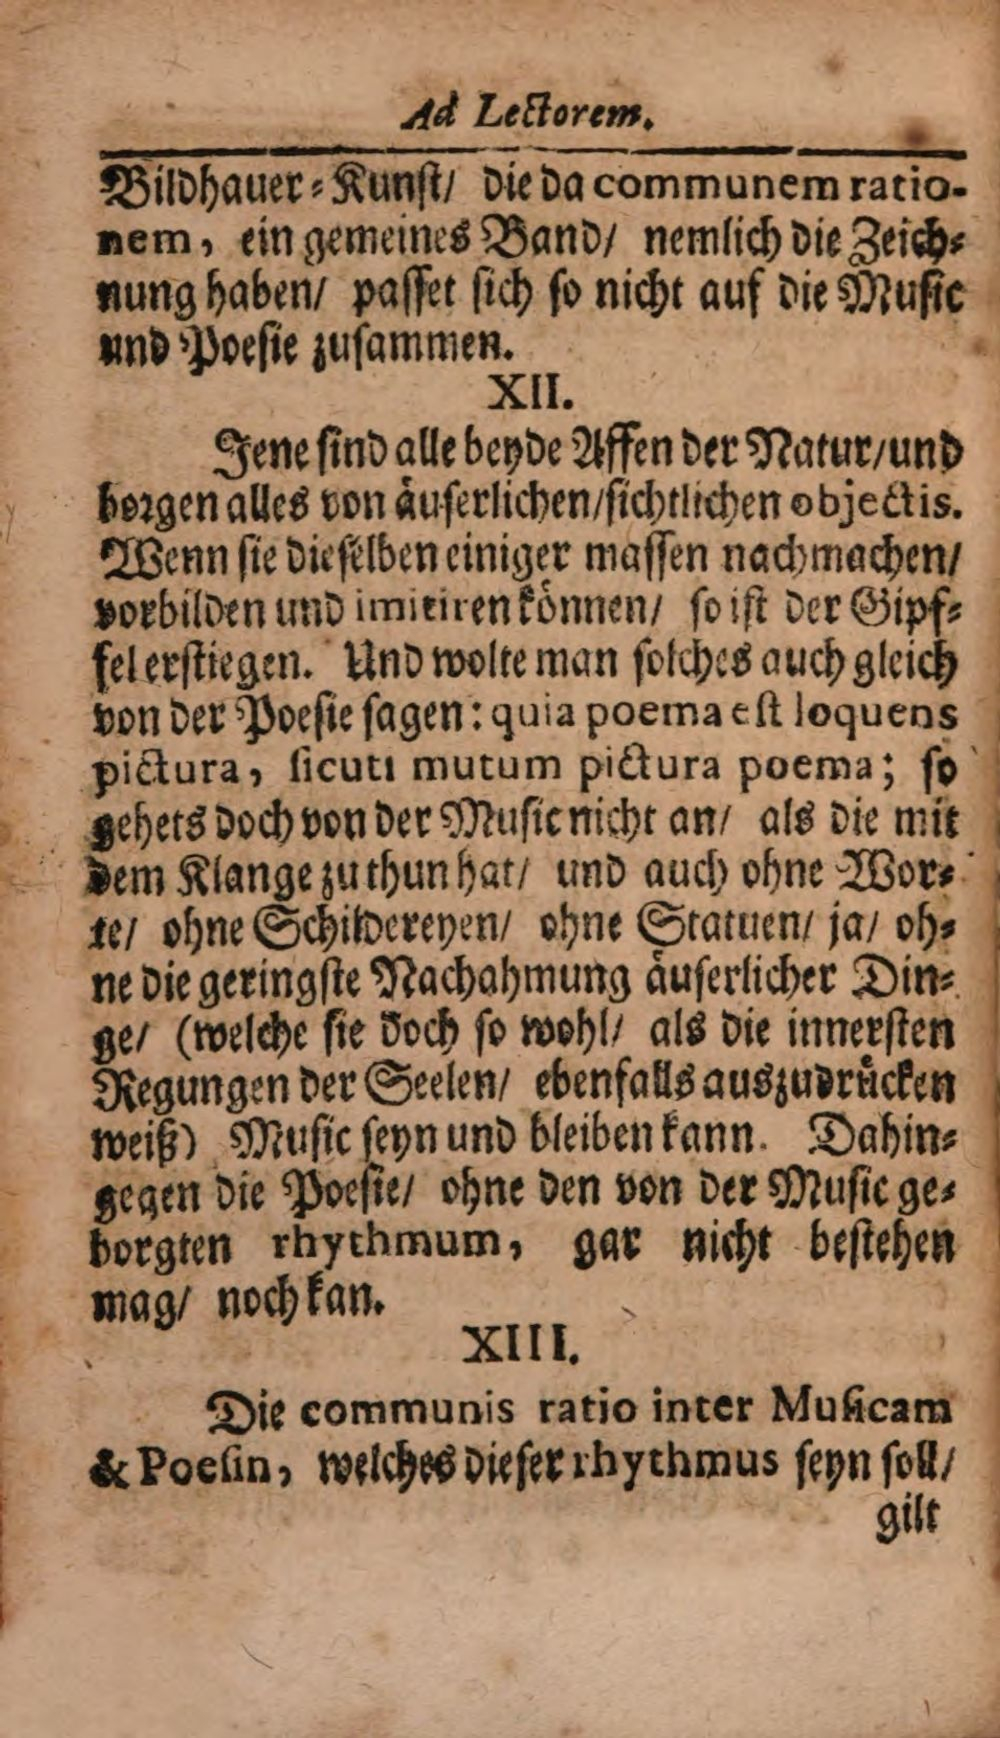 Ad Lectorem.
Bildhauer-Kunst/ die da communem ratio-
nem, ein gemeines Band/ nemlich die Zeich-
nung haben/ passet sich so nicht auf die Music
und Poesie zusammen.
XII.
Jene sind alle beyde Affen der Natur/und
borgen alles von äuserlichen/sichtlichen objectis.
Wenn sie dieselben einiger massen nachmachen/
vorbilden und imitiren können/ so ist der Gipf-
fel erstiegen. Und wolte man solches auch gleich
von der Poesie sagen: quia poema est loquens
pictura, sicuti mutum pictura poema; so
gehets doch von der Music nicht an/ als die mit
dem Klange zu thun hat/ und auch ohne Wor-
te/ ohne Schildereyen/ ohne Statuen/ ja/ oh-
ne die geringste Nachahmung äuserlicher Din-
ge/ (welche sie doch so wohl/ als die innersten
Regungen der Seelen/ ebenfalls auszudrücken
weiß) Music seyn und bleiben kann. Dahin-
gegen die Poesie/ ohne den von der Music ge-
borgten rhythmum, gar nicht bestehen
mag/ noch kan.
XIII.
Die communis ratio inter Musicam
& Poesin, welches dieser rhythmus seyn soll/
gilt